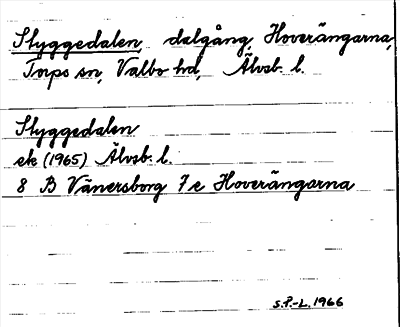 Styggedalen, dalgång, Hoverängarna,
Torps sn, Valbo hd, Älvsb. l.
Styggedalen
ek (1965) Älvsb. l.
8 B Vänersborg 7 e Hoverängarna
S.P.-L. 1966